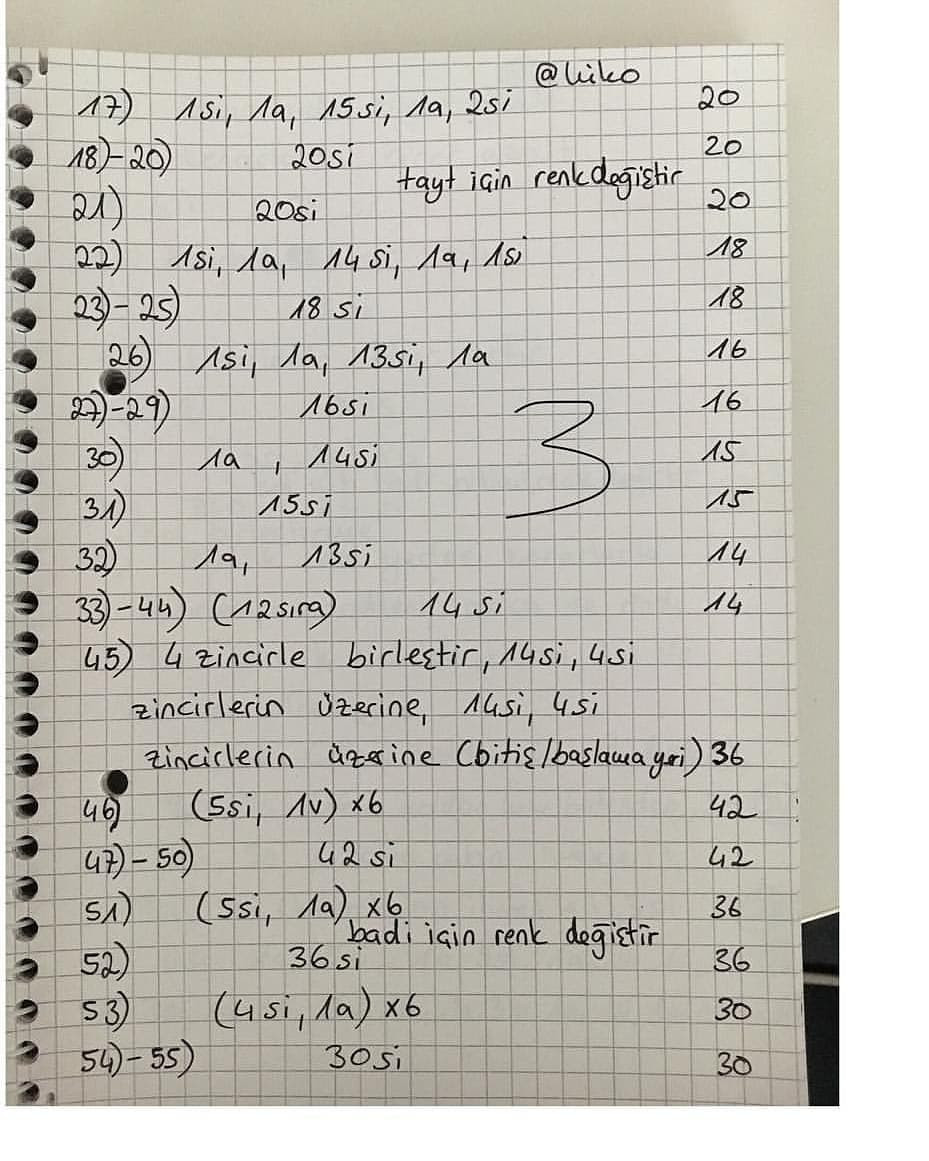 @kiko
17) 1si, 1a, 15si, 1a, 2si 20
18)-20) 20si 20
tayt için renk değiştir
21) 20si 20
22) 1si, 1a, 14si, 1a, 1si 18
23)-25) 18 si 18
26) 1si, 1a, 13si, 1a 16
27)-29) 16si 16
3
30) 1a , 14si 15
31) 15si 15
32) 1a, 13si 14
33)-44) (12sıra) 14 si 14
45) 4 zincirle birleştir, 14si, 4si
zincirlerin üzerine, 14si, 4si
zincirlerin üzerine (bitiş/başlama yeri) 36
46) (5si, 1v) x6 42
47)-50) 42 si 42
51) (5si, 1a) x6 36
badi için renk değiştir
52) 36si 36
53) (4si, 1a) x6 30
54)-55) 30si 30